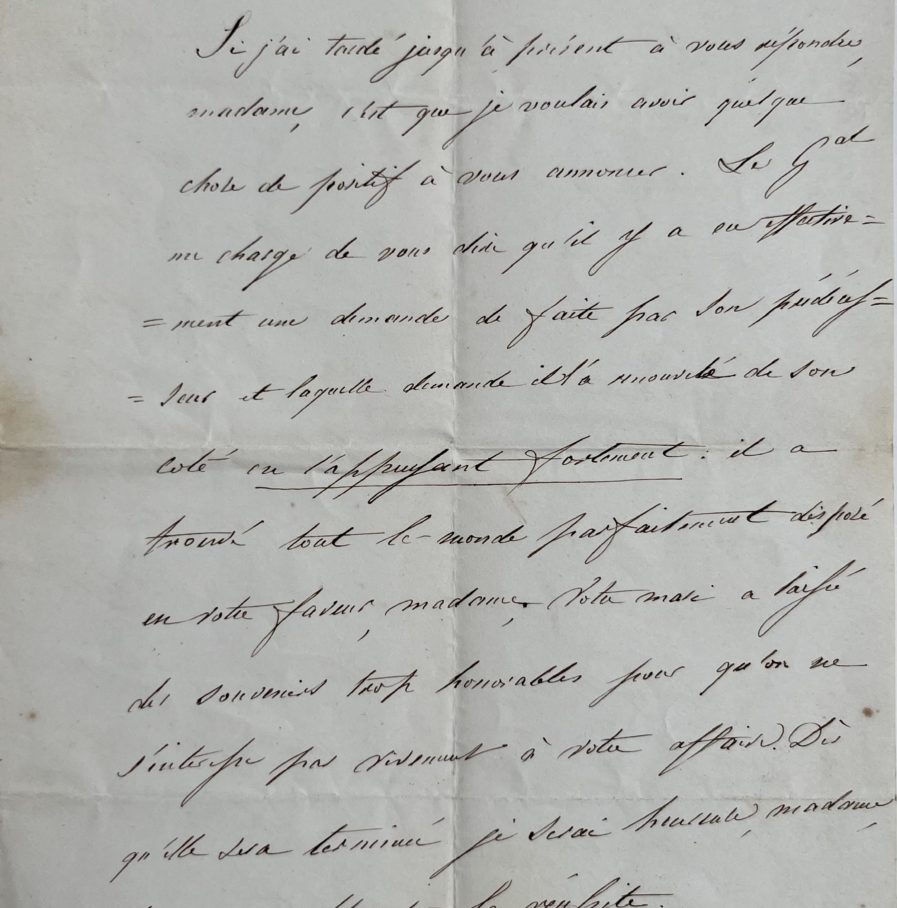 Si j'ai tardé jusqu'à présent à vous répondre,
madame, c'est que je voulais avoir quelque
chose de positif à vous annoncer. Le Gal
me charge de vous dire qu'il y a eu effective=
=ment une demande de faite par son prédéces=
=seur et laquelle demande il l'a renouvelé de son
coté en l'appuyant fortement : il a
trouvé tout le monde parfaitement disposé
en votre faveur, madame. Votre mari a laissé
des souvenirs trop honorables pour qu'on ne
s'intéresse pas vivement à votre affaire. Dès
qu'elle sera terminée je serai heureuse, madame,
la réussite.